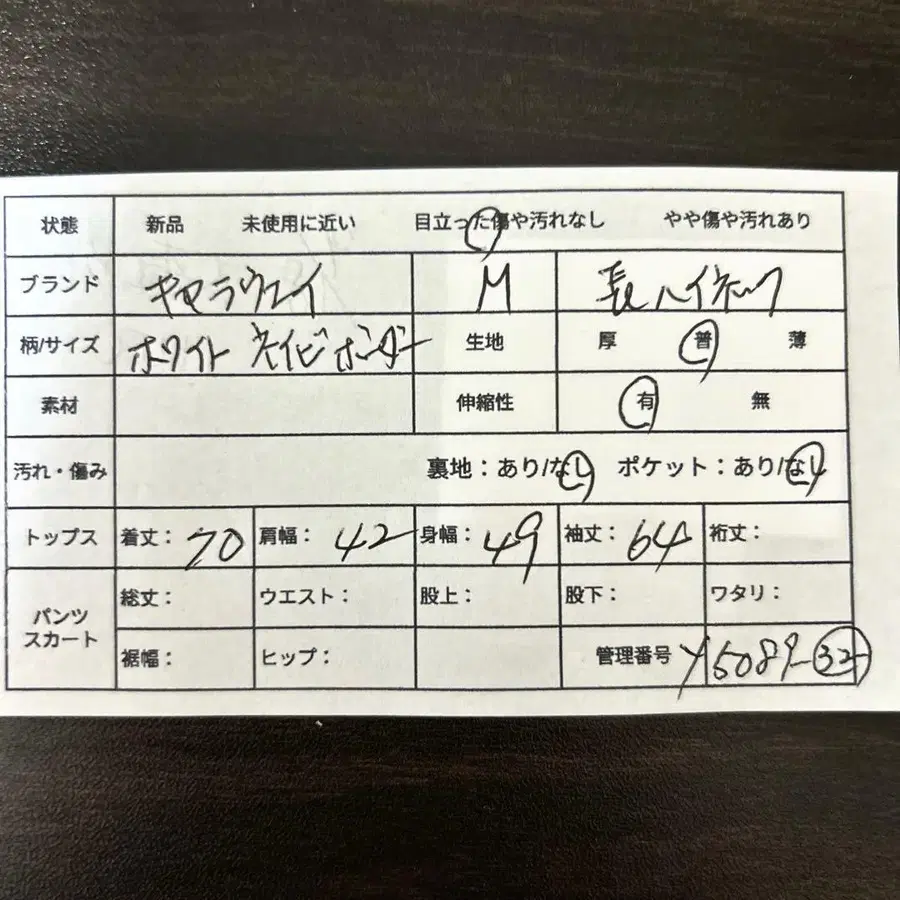 状態 新品 未使用に近い 目立った傷や汚れなし やや傷や汚れあり
ブランド キャラウェイ M 長ハイネック
柄/サイズ ホワイト ネイビ ボーダー 生地 厚 普 薄
素材 伸縮性 有 無
汚れ・傷み 裏地：あり/なし ポケット：あり/なし
トップス 着丈：70 肩幅：42 身幅：49 袖丈：64 裄丈：
パンツ スカート 総丈： ウエスト： 股上： 股下： ワタリ：
裾幅： ヒップ： 管理番号 Y5089-32